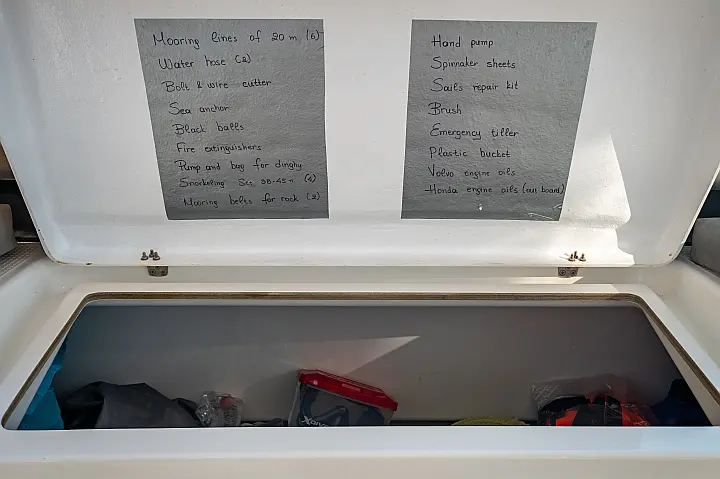 Mooring lines of 20 m (6)
Water hose (2)
Bolt & wire cutter
Sea anchor
Black balls
Fire extinguishers
Pump and bag for dinghy
Snorkeling Set 38-45 n. (4)
Mooring belts for rock (2)
Hand pump
Spinnaker sheets
Sails repair kit
Brush
Emergency tiller
Plastic bucket
Volvo engine oils
Honda engine oils (out board)